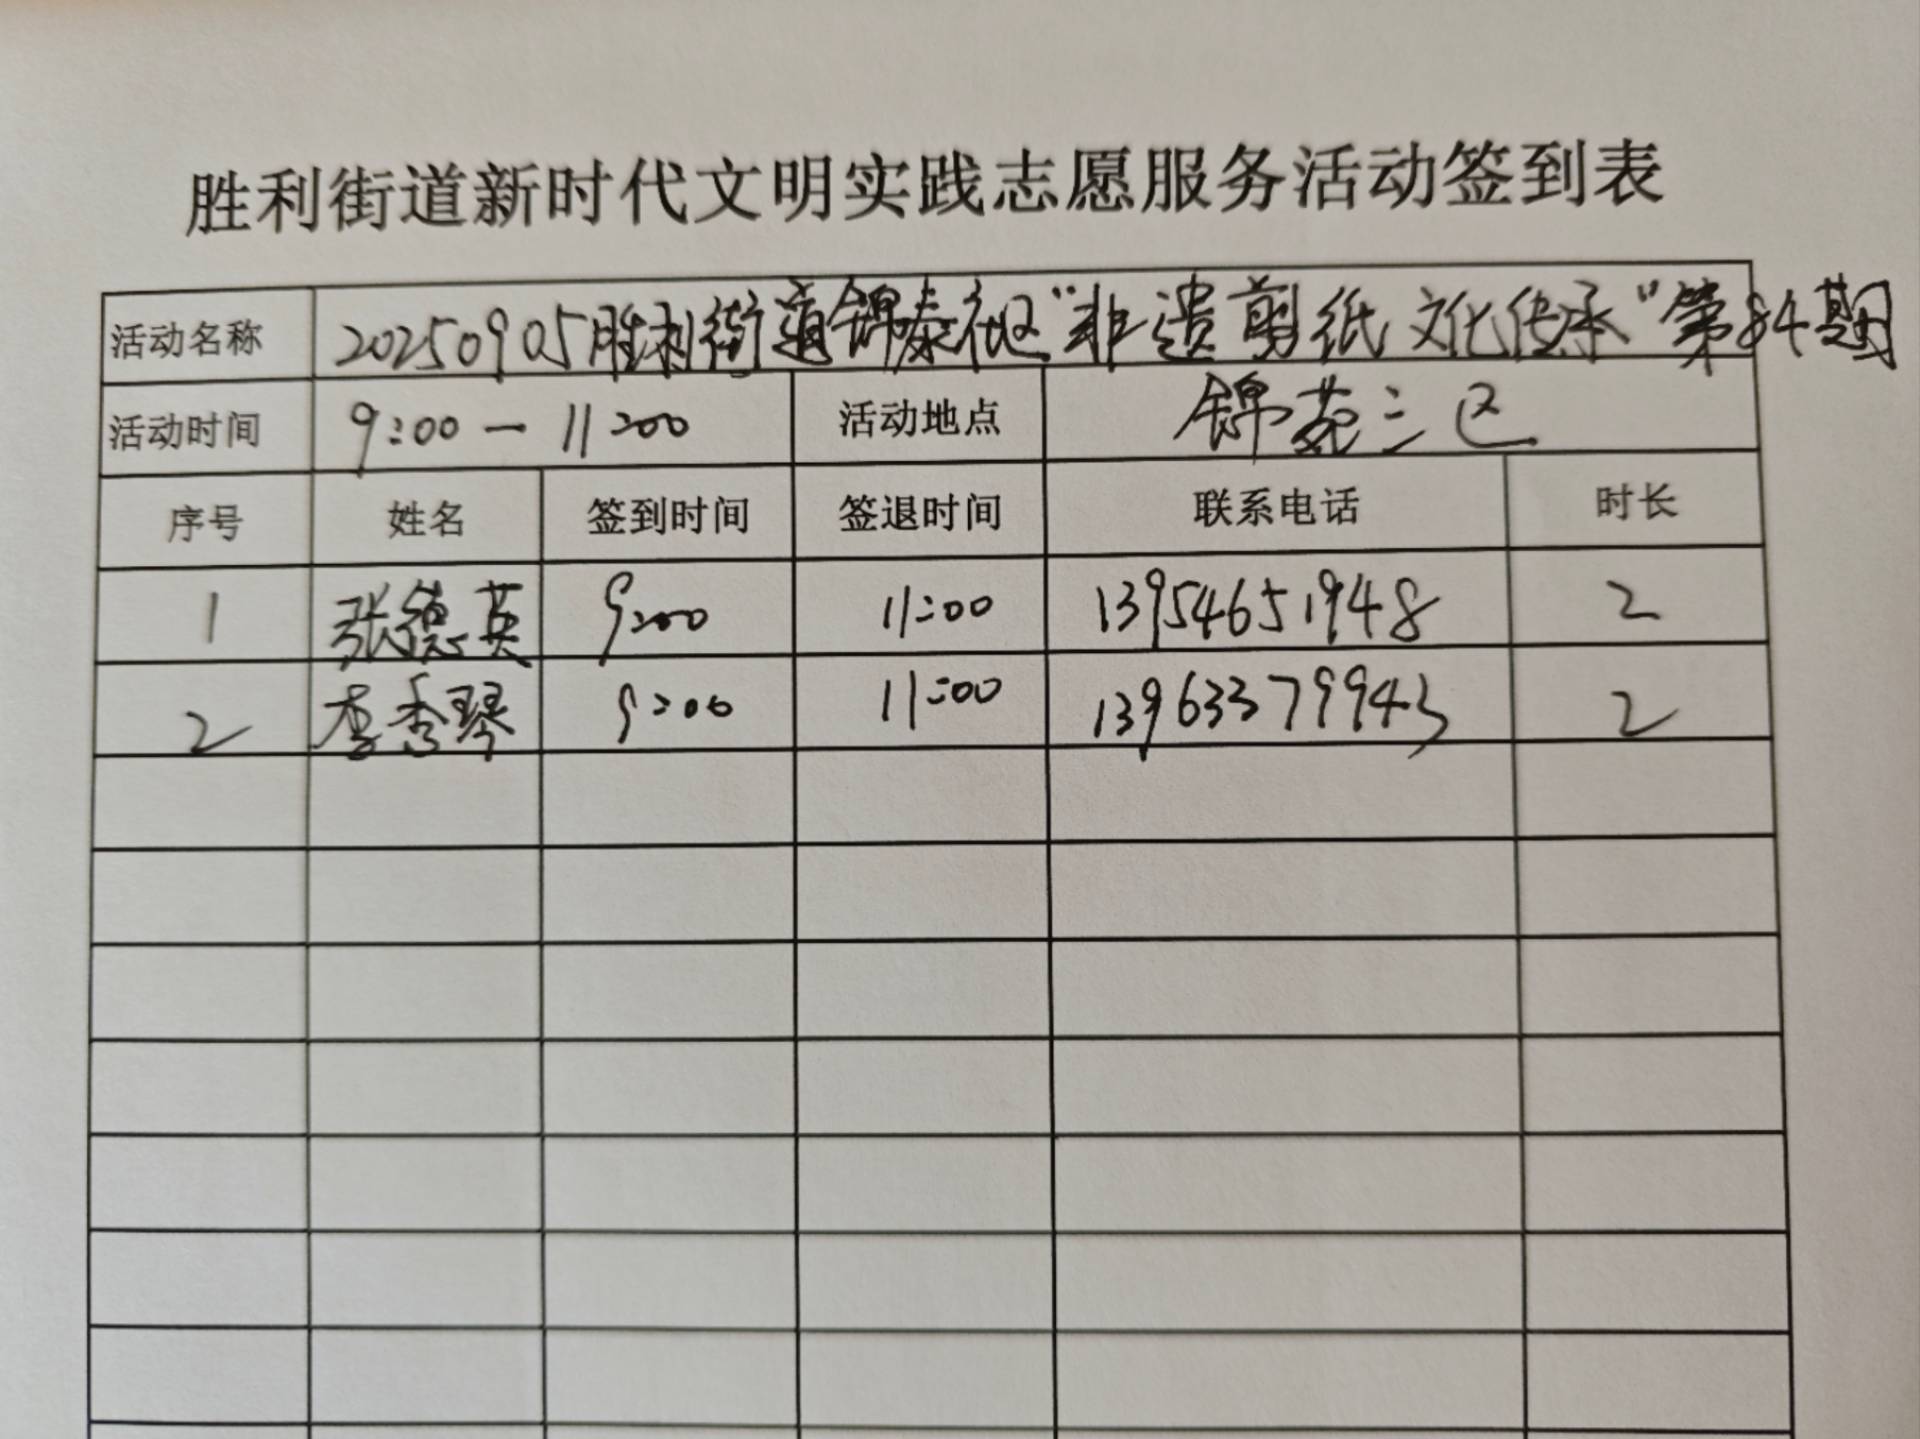 胜利街道新时代文明实践志愿服务活动签到表
活动名称 20250905胜利街道锦泰社区“非遗剪纸文化传承”第84期
活动时间 9:00-11:00 活动地点 锦苑三区
序号 姓名 签到时间 签退时间 联系电话 时长
1 张德英 9:00 11:00 13954651948 2
2 李秀琴 9:00 11:00 13963379943 2